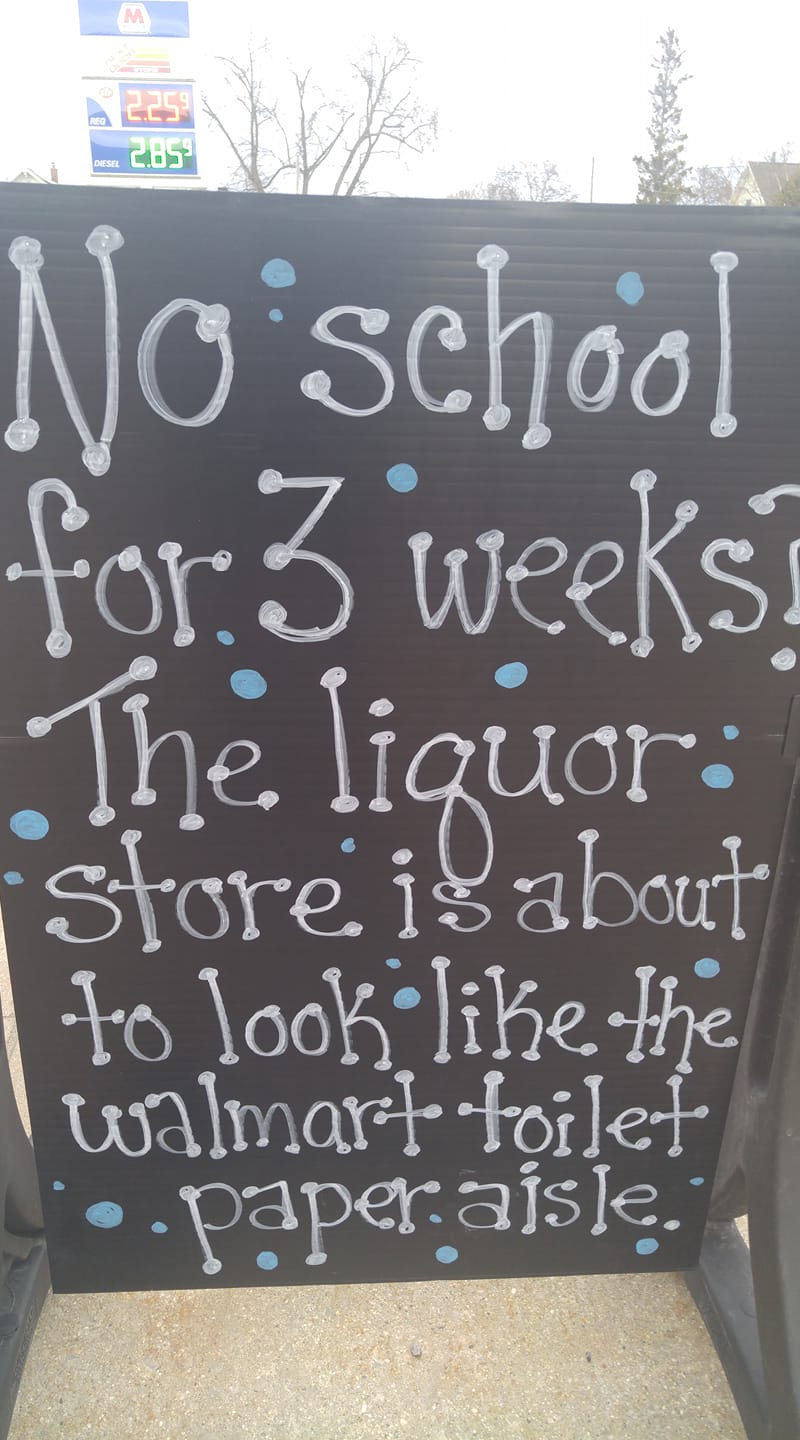 M
REG 2.25 9
DIESEL 2.85 9
No school
for 3 weeks?
The liquor
store is about
to look like the
walmart toilet
paper aisle.